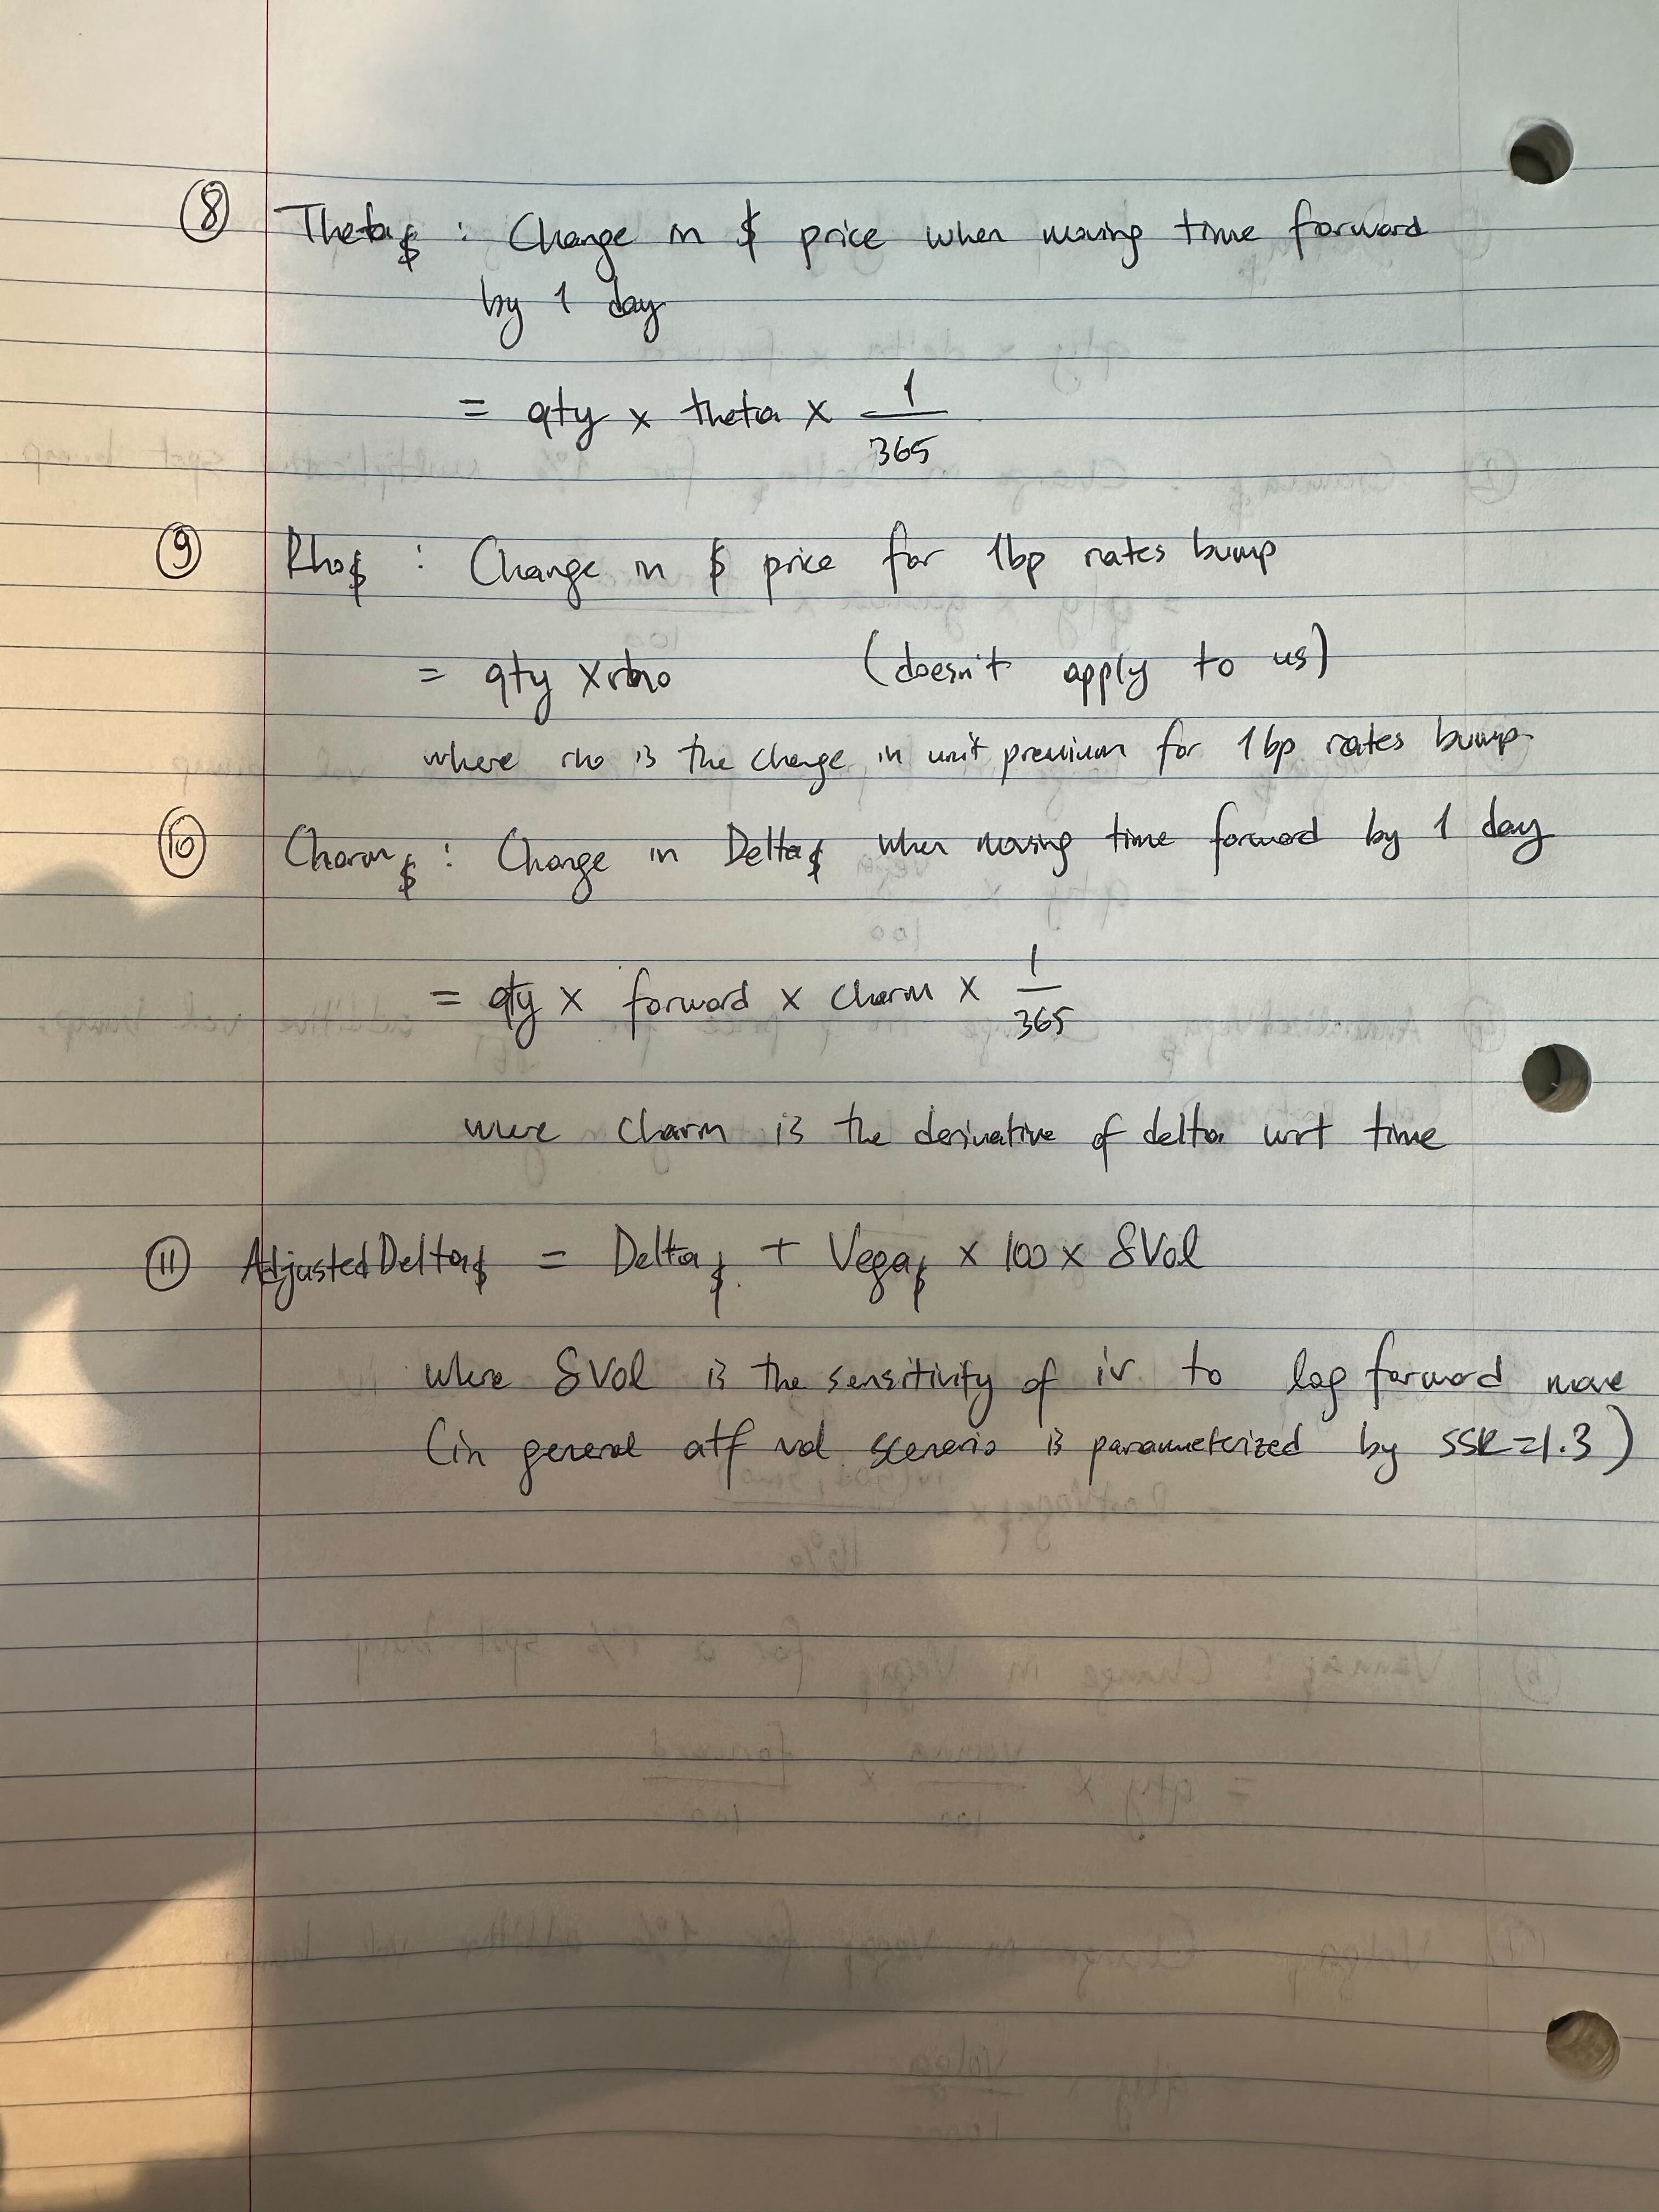 ⑧ Theta$ : Change in $ price when moving time forward
by 1 day
= qty x theta x 1/365
⑨ Rho$ : Change in $ price for 1bp rates bump
= qty x rho (doesn't apply to us)
where rho is the change in unit premium for 1bp rates bump
⑩ Charm$ : Change in Delta$ when moving time forward by 1 day
= qty x forward x charm x 1/365
where charm is the derivative of delta wrt time
⑪ AdjustedDelta$ = Delta$ + Vega$ x 100 x δVol
where δVol is the sensitivity of iv to log forward move
(in general atf vol scenario is parameterized by SSR=1.3)